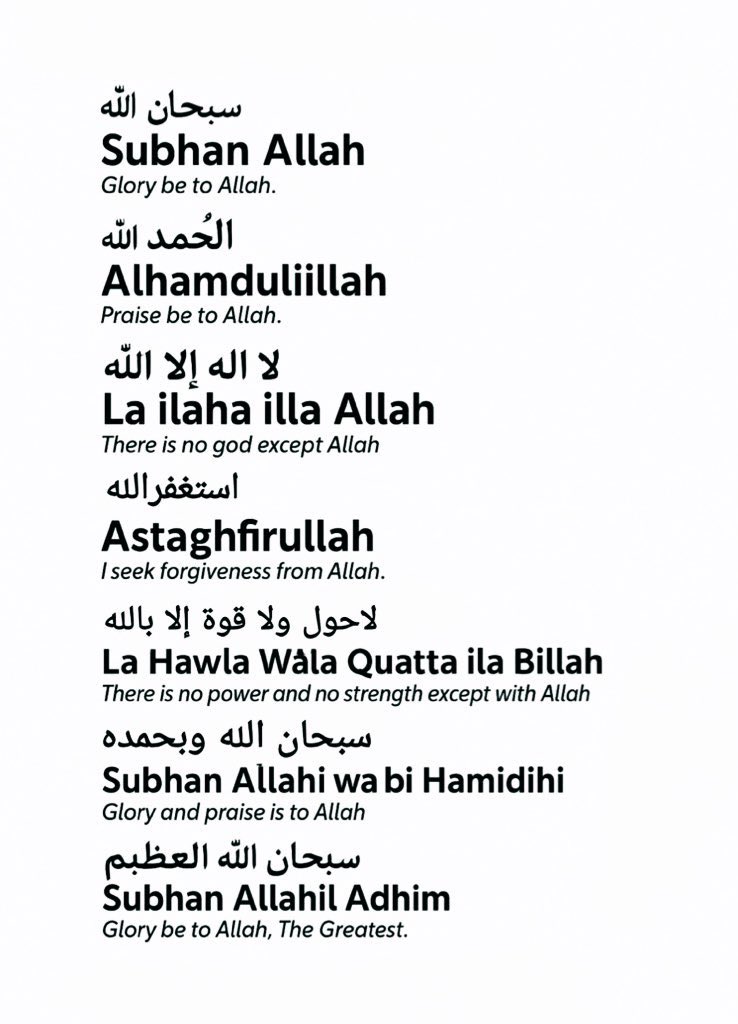 سبحان الله
Subhan Allah
Glory be to Allah.
الحُمد الله
Alhamduliillah
Praise be to Allah.
لا اله إلا الله
La ilaha illa Allah
There is no god except Allah
استغفرالله
Astaghfirullah
I seek forgiveness from Allah.
لاحول ولا قوة إلا بالله
La Hawla Wala Quatta ila Billah
There is no power and no strength except with Allah
سبحان الله وبحمده
Subhan Allahi wa bi Hamidihi
Glory and praise is to Allah
سبحان الله العظبم
Subhan Allahil Adhim
Glory be to Allah, The Greatest.